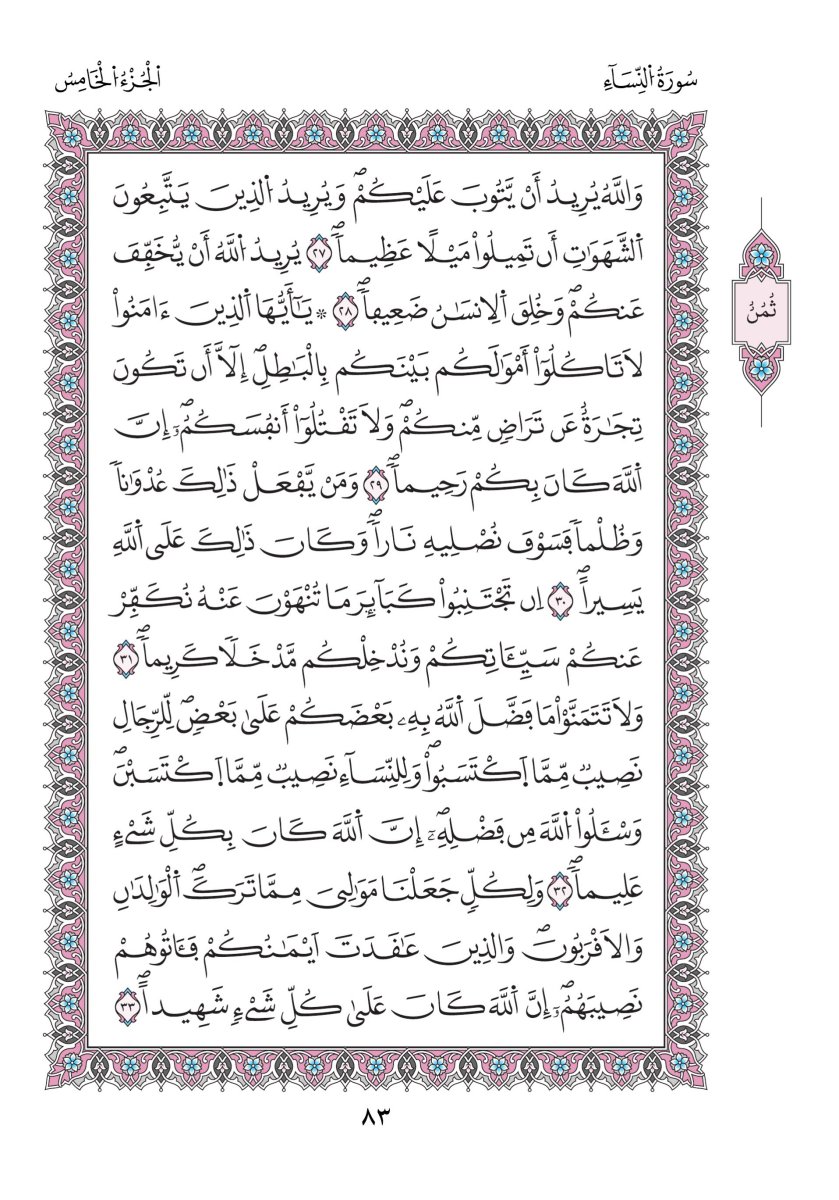 سُورَةُ اُ۬لنِّسَآءِ
اَ۬لْجُزْءُ اُ۬لْخَامِسُ
وَاللَّهُ يُرِيدُ أَنْ يَّتُوبَ عَلَيْكُمْۖ وَيُرِيدُ اُ۬لذِينَ يَتَّبِعُونَ
اَ۬لشَّهَوَٰتِ أَن تَمِيلُواْ مَيْلًا عَظِيماٗۖ ٢٧ يُرِيدُ اُ۬للَّهُ أَنْ يُّخَفِّفَ
عَنكُمْۖ وَخُلِقَ اَ۬لِانسَٰنُ ضَعِيفاٗۖ ٢٨ ۞ يَٰٓأَيُّهَا اَ۬لذِينَ ءَامَنُواْ
لَا تَاكُلُوٓاْ أَمْوَٰلَكُم بَيْنَكُم بِالْبَٰطِلِۖ إِلَّآ أَن تَكُونَ
تِجَٰرَةٌ عَن تَرَاضٖ مِّنكُمْۖ وَلَا تَقْتُلُوٓاْ أَنفُسَكُمُۥٓۖ إِنَّ
اَ۬للَّهَ كَانَ بِكُمْ رَحِيماٗۖ ٢٩ وَمَنْ يَّفْعَلْ ذَٰلِكَ عُدْوَٰناٗ
وَظُلْماٗ فَسَوْفَ نُصْلِيهِ نَاراٗۖ وَكَانَ ذَٰلِكَ عَلَى اَ۬للَّهِ
يَسِيراًۖ ٣٠ اِن تَجْتَنِبُواْ كَبَآئِرَ مَا تُنْهَوْنَ عَنْهُ نُكَفِّرْ
عَنكُمْ سَيِّـَٔاتِكُمْ وَنُدْخِلْكُم مَّدْخَلاٗ كَرِيماٗۖ ٣١
وَلَا تَتَمَنَّوْاْ مَا فَضَّلَ اَ۬للَّهُ بِهِۦ بَعْضَكُمْ عَلَىٰ بَعْضٖۖ لِّلرِّجَالِ
نَصِيبٞ مِّمَّا اَ۪كْتَسَبُواْۖ وَلِلنِّسَآءِ نَصِيبٞ مِّمَّا اَ۪كْتَسَبْنَۖ
وَسْـَٔلُواْ اُ۬للَّهَ مِن فَضْلِهِۦٓۖ إِنَّ اَ۬للَّهَ كَانَ بِكُلِّ شَےْءٍ
عَلِيماٗۖ ٣٢ وَلِكُلّٖ جَعَلْنَا مَوَٰلِيَ مِمَّا تَرَكَۖ اَ۬لْوَٰلِدَٰنِ
وَالَاقْرَبُونَۖ وَالذِينَ عَٰقَدَتَ اَيْمَٰنُكُمْ فَـَٔاتُوهُمْ
نَصِيبَهُمُۥٓۖ إِنَّ اَ۬للَّهَ كَانَ عَلَىٰ كُلِّ شَےْءٖ شَهِيداًۖ ٣٣
ثُمُنُ
٨٣